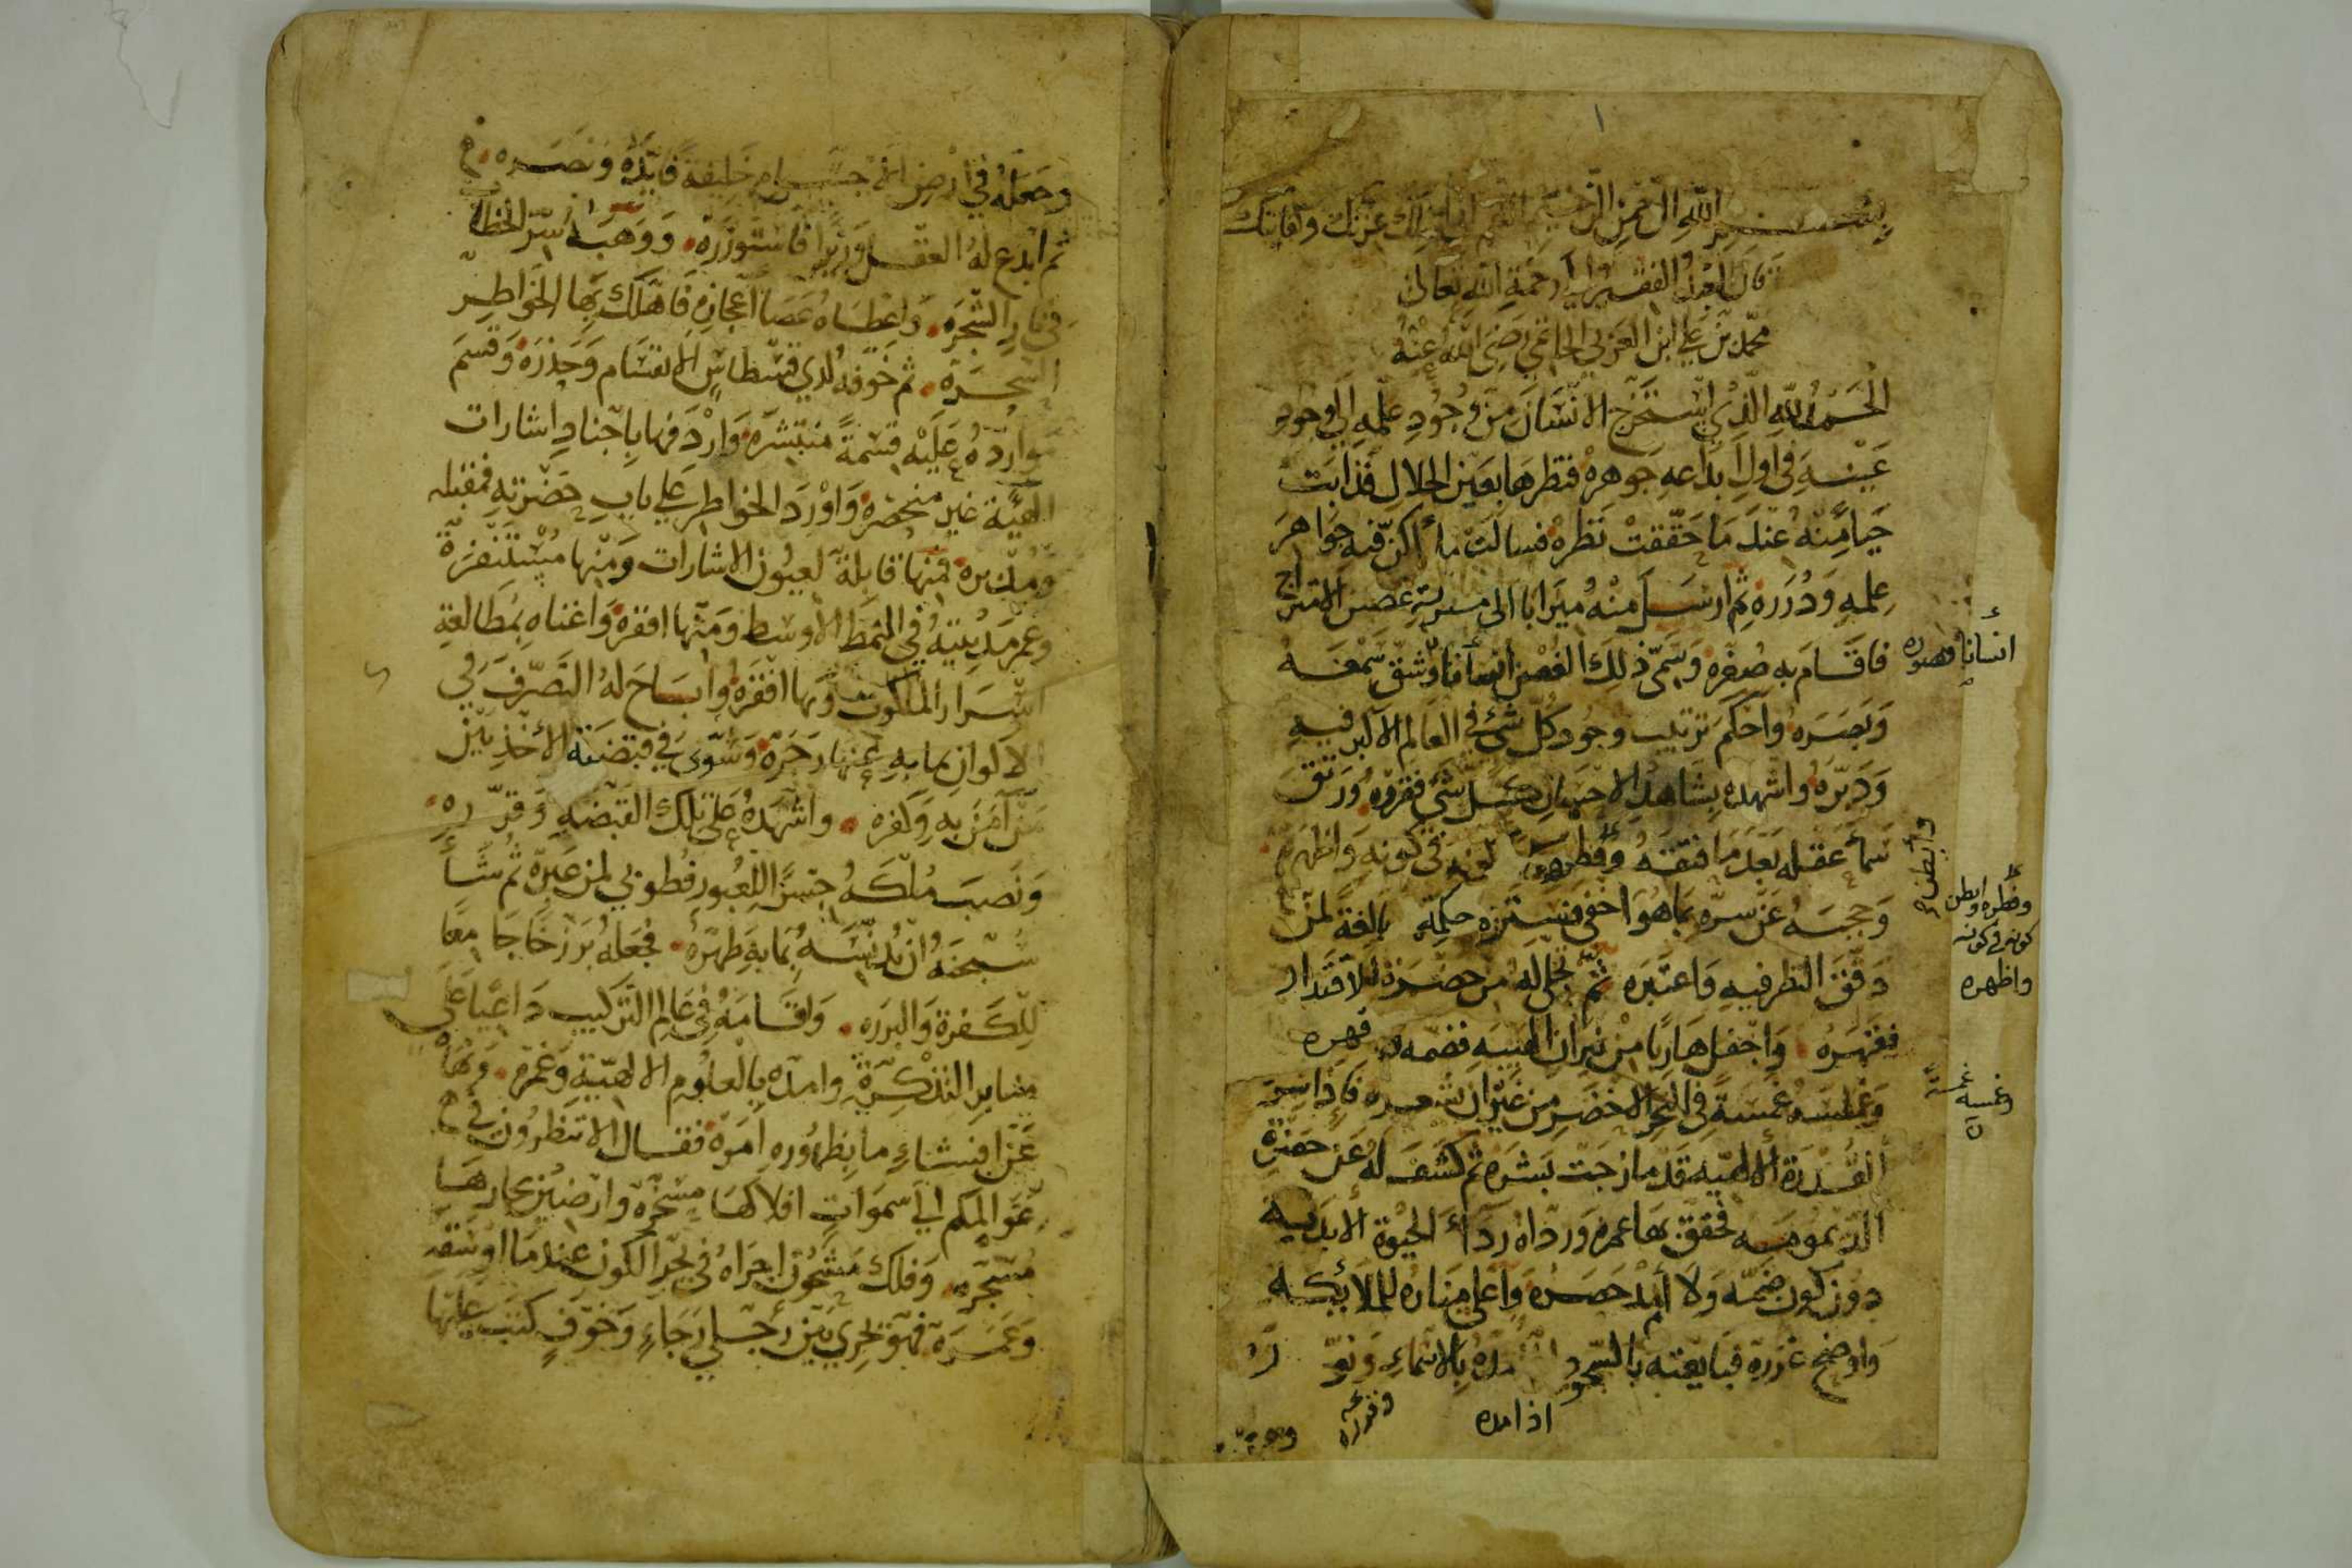 بسم الله الرحمن الرحيم
قال العبد الفقير إلى رحمة الله تعالى
محمد بن علي ابن العربي الحاتمي رضي الله عنه
الحمد لله الذي استخرج الانسان من وجود علمه الى وجود
عينه في اول ابداعه جوهره فنظرها بعين الجلال فذابت
حيا منه عند ما حققت نظره فسالت ما أكن فيه جواهر
علمه ودرره ثم ارسل منه ميزابا الى
فاقام به صعره وسمى ذلك الغصن انسانا وشق سمعه
انسانا فصوره
وبصره واحكم ترتيب وجود كل شئ في العالم الاكبر فيه
ودبره واشهده بشاهد الاحسان كل شئ فقرره ورتق
سماء عقله بعد ما فتقه وفطره في كونه واظهره
وفطره وابطن
كونه في كونه
واظهره
وحجبه عن سره بما هو اخفى فستره حكمة بالغة لمن
دقق النظر فيه واعتبره ثم تجلى له من حضرة الاقتدار
فقهره واجفل هاربا من نيران الهيبه فضمه قهره
وغمسه غمسة في البحر الاخضر من غير ان شعره فاذا بسر
وغمسه غمسة
القدرة الالهيه قد مازجت بشره ثم كشف له عن حضرة
الديموميه فحقق بها عمره ورداه رداء الحيوة الابديه
دون كون ضمه ولا أمد حصره وأعلى مناره للملائكه
واوضح غرره فبايعته بالسجود بالاسماء
اذ امده
وجعله في ارض الاجسام خليفة فايده ونصره
ثم ابدع له العقل وزيرا فاستوزره ووهبه سر الخطاب
في نار الشجره واعطاه عصا اعجازه فاهلك بها الخواطر
السحره ثم خوفه لدي قسطاس الانقسام وحذره وقسم
موارده عليه قسمة منتشره واردفها باجناد اشارات
الهية غير منحصره واورد الخواطر على باب حضرته فمقبله
ومدبره فمنها قابلة لعيون الاشارات ومنها مستنفرة
وعمر مدينته في النمط الاوسط ومنها افقره واغناه بمطالعة
اسرار الملكوت وبها افقره واباح له التصرف في
الاكوان بما به عنها زجره وسوى في قبضته الأخذ بين
من آمن به وكفره واشهده على تلك القبضه وقرره
ونصب ملكه جسرا للعبور فطوبى لمن عبره ثم شاء
سبحنه ان يدنسه بما به طهره فجعله برزخا جامعا
للكفرة والبرره واقامه في عالم التركيب داعيا على
منابر التذكرة وامده بالعلوم الالهية وغمره ونهاه
عن افشاء ما بظهوره امره فقال الا تنظرون في
عوالمكم الى سموات افلاكها مسخره وارضين بحارها
مسجره وفلك مشحون اجراه في بحر الكون عندما اوسقه
وعمره فهو تجري بين رجلي رجاء وخوف كتب عليها